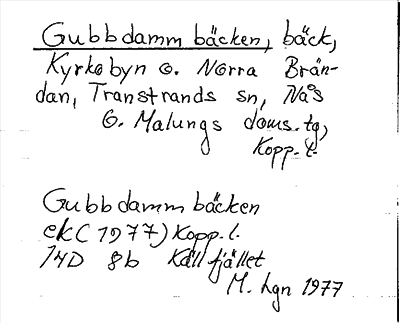 Gubbdammbäcken, bäck,
Kyrkobyn o. Norra Brän-
dan, Transtrands sn, Nås
o. Malungs doms.tg,
Kopp. l.
Gubbdammbäcken
ekC 1977) Kopp. l.
14D 8b Källfjället
M. Lgn 1977